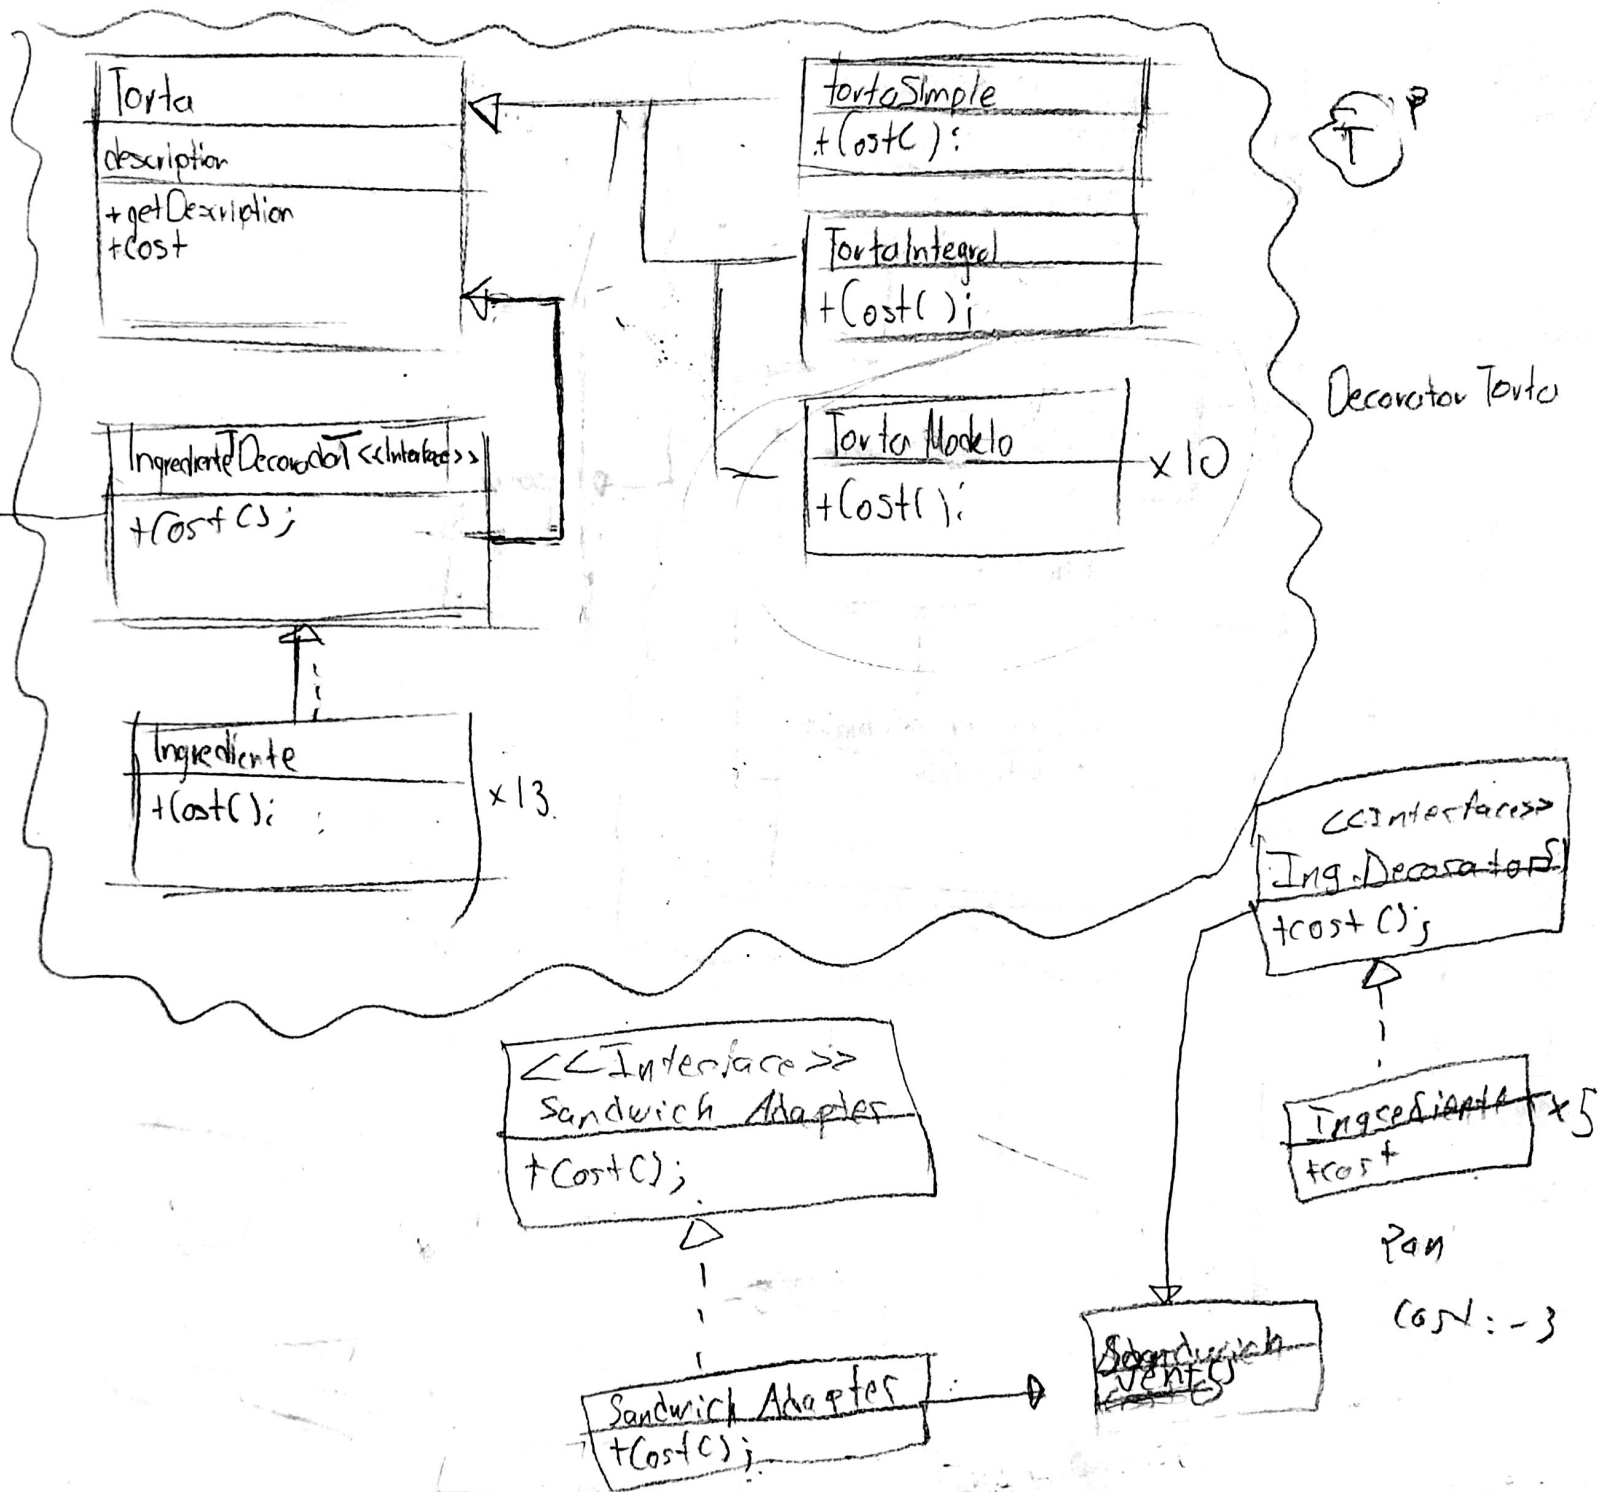 Torta
description
+getDescription
+Cost
tortaSimple
+Cost():
TortaIntegral
+Cost();
Torta Modelo
+Cost();
x10
T
P
Decorator Torta
IngredienteTDecoradorT<<Interface>>
+Cost();
Ingrediente
+Cost();
x13.
<<Interface>>
Ing.DecoratorS
+cost();
Ingrediente
+cost
x5
Pan
Cost: -3
<<Interface>>
Sandwich Adapter
+Cost();
Sandwich Adapter
+Cost();
Sandwich